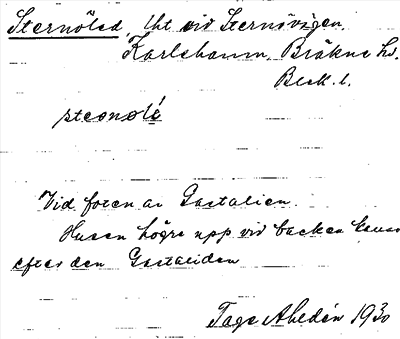 Sternöled, Uht vid Sternövägen.
Karlshamn, Bräkne hd.
Blek. l.
stæonøle´
Vid foten av Gastalien.
Husen högre upp vid backen
efter den Gastaliden
Tage Ahldén 1930